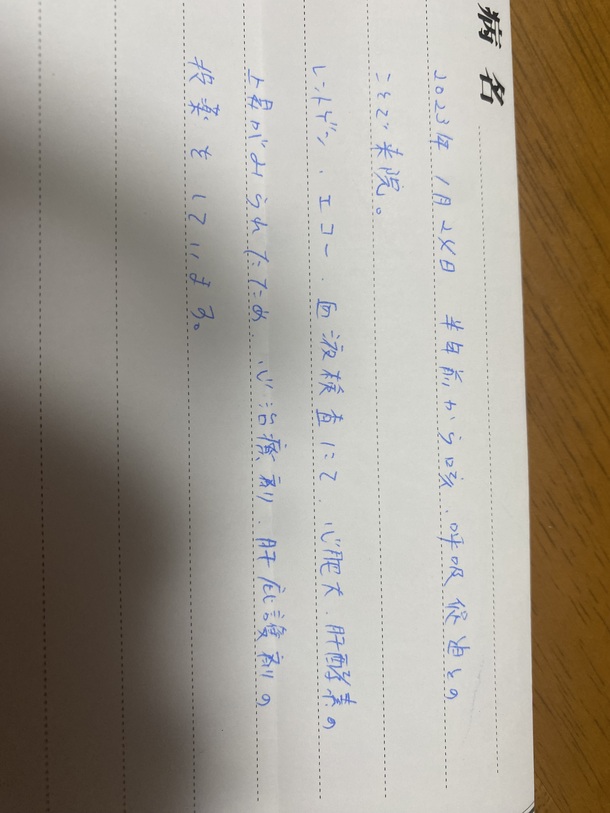 病名
2023年 1月24日 半年前から咳、呼吸促迫との
ことで来院。
レントゲン、エコー、血液検査にて、心肥大、肝酵素の
上昇がみられたため、心治療剤、肝庇護剤の
投薬をしています。